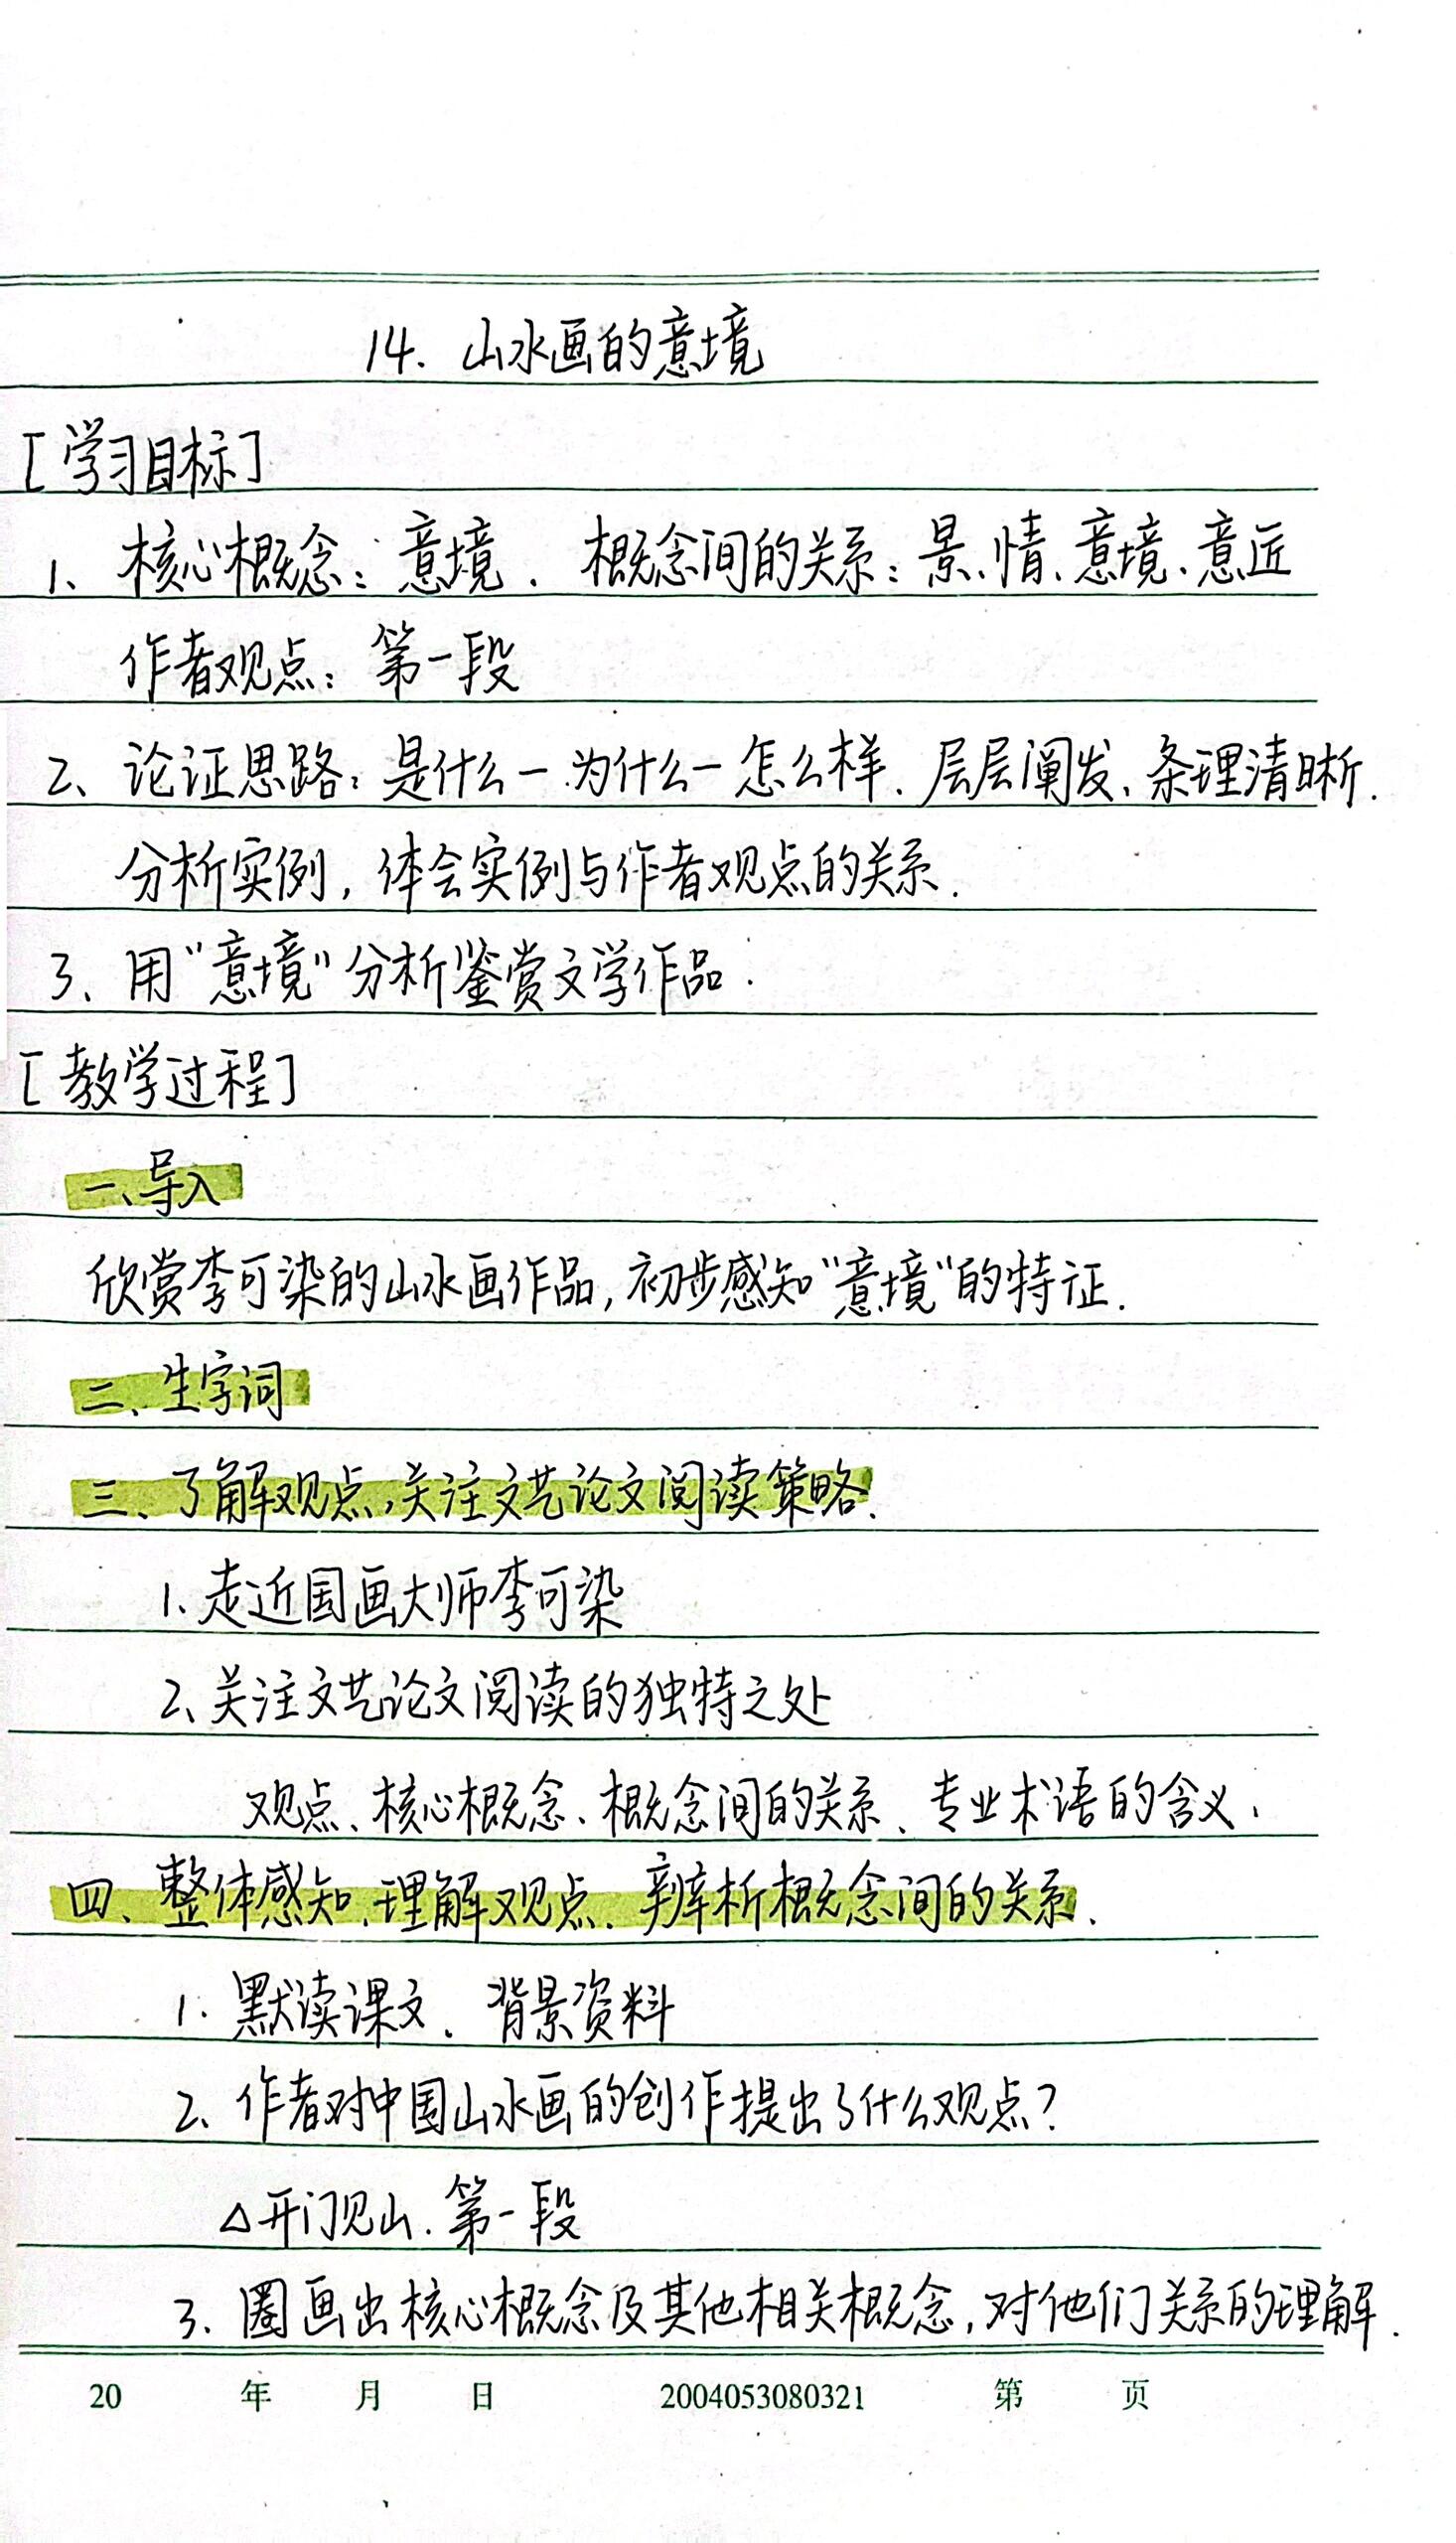 14. 山水画的意境
[学习目标]
1、核心概念：意境．概念间的关系：景、情、意境、意匠
作者观点：第一段
2、论证思路：是什么－为什么－怎么样．层层阐发，条理清晰．
分析实例，体会实例与作者观点的关系．
3、用“意境”分析鉴赏文学作品．
[教学过程]
一、导入
欣赏李可染的山水画作品，初步感知“意境”的特征．
二、生字词
三、了解观点，关注文艺论文阅读策略．
1、走近国画大师李可染
2、关注文艺论文阅读的独特之处
观点、核心概念、概念间的关系、专业术语的含义．
四、整体感知，理解观点．辨析概念间的关系．
1．默读课文、背景资料
2、作者对中国山水画的创作提出了什么观点？
△开门见山．第一段
3．圈画出核心概念及其他相关概念，对他们关系的理解．
20 年 月 日 2004053080321 第 页